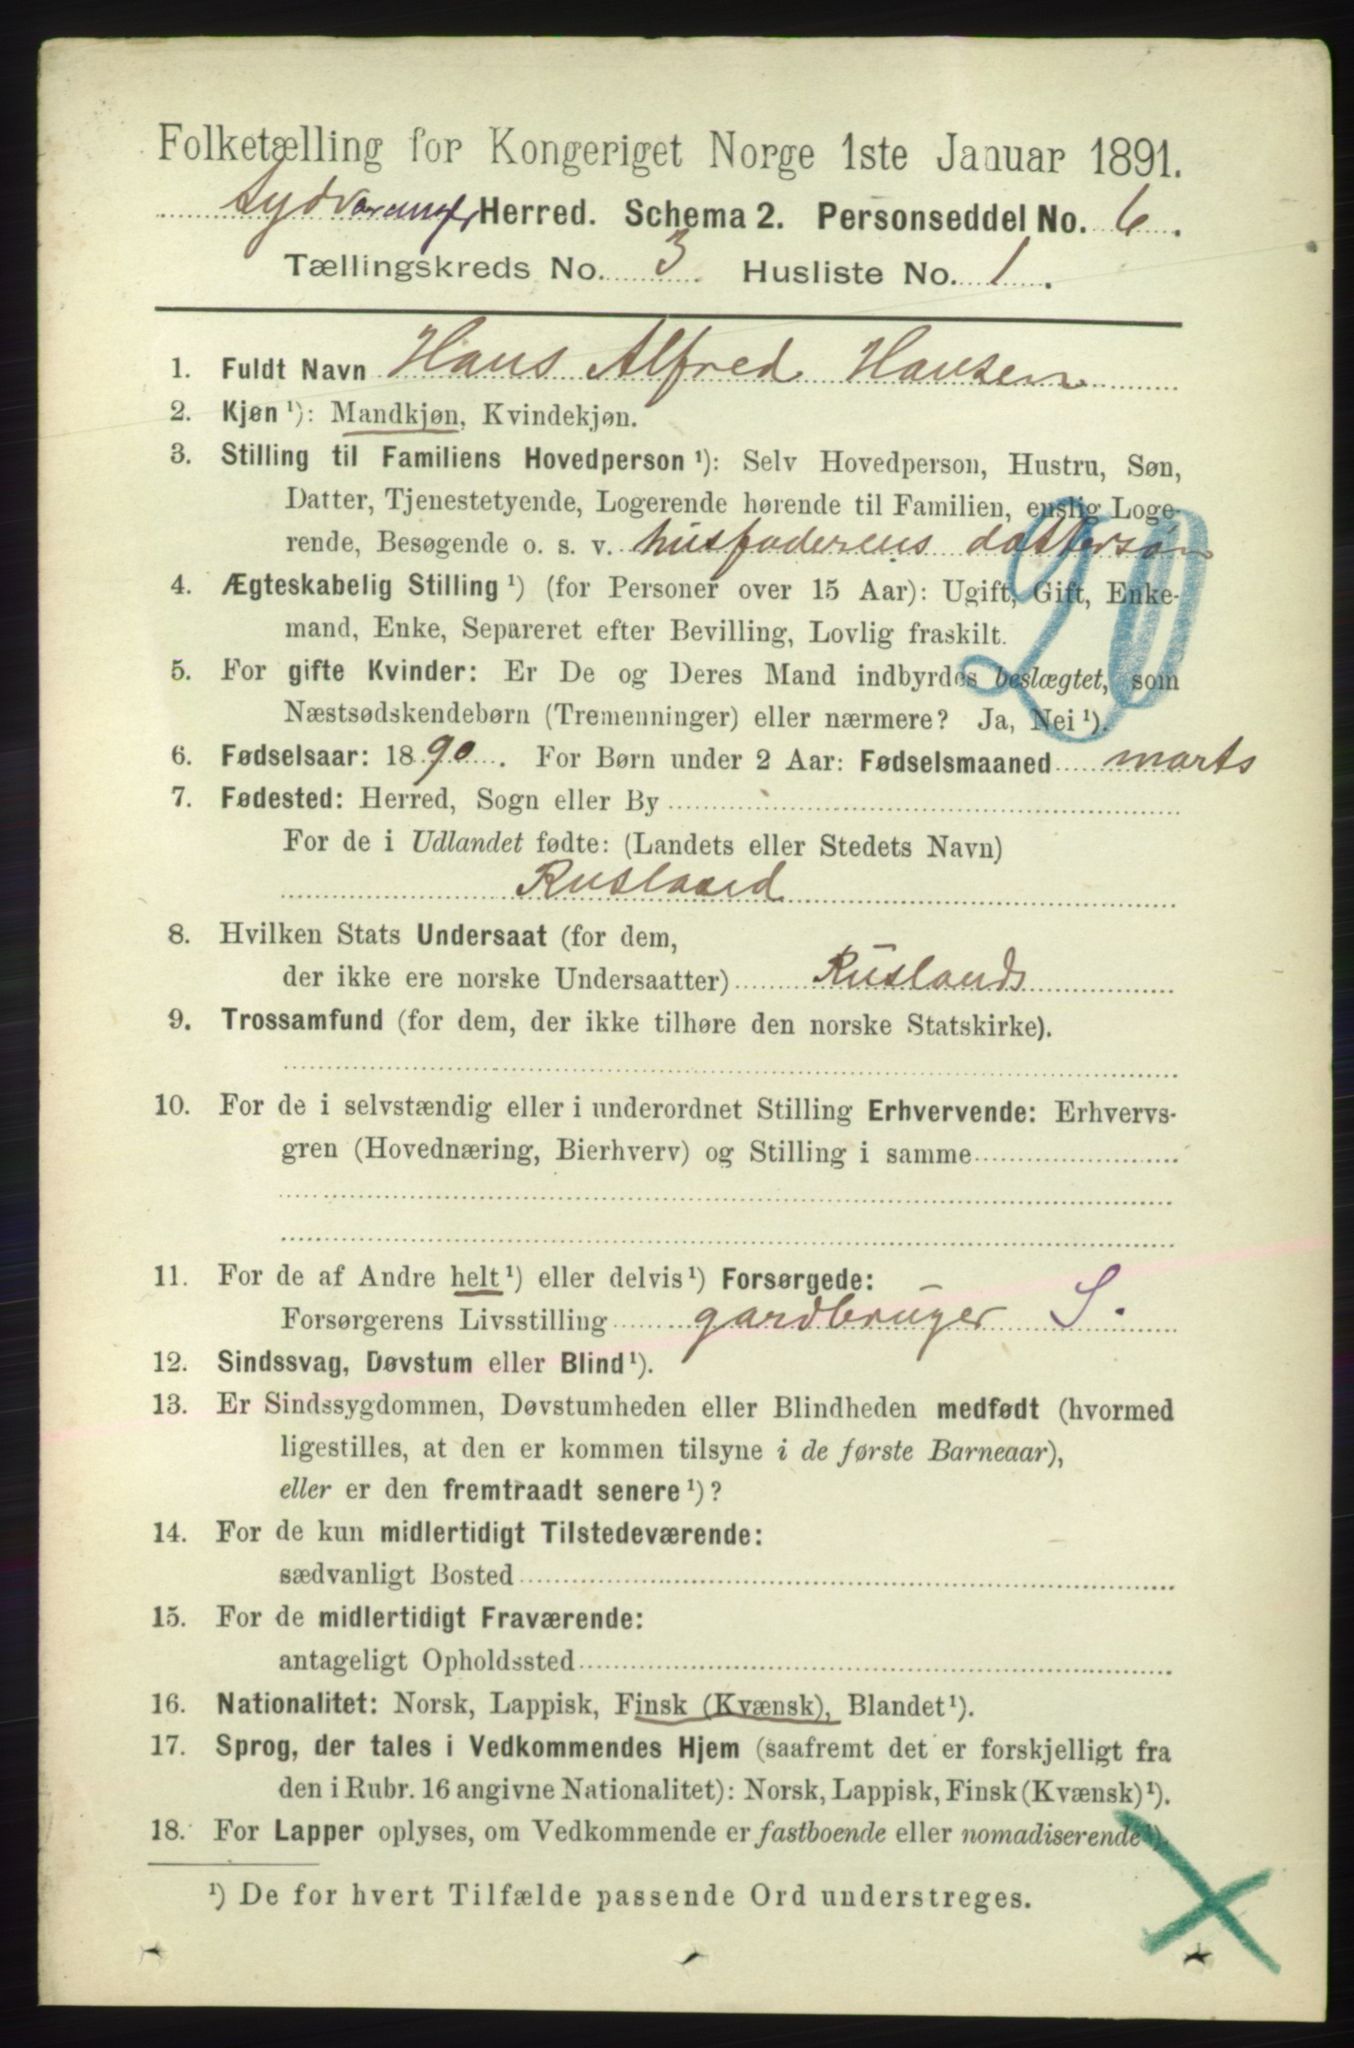 Folketælling for Kongeriget Norge 1ste Januar 1891.
Sydvaranger Herred. Schema 2. Personseddel No. 6.
Tællingskreds No. 3. Husliste No. 1.
1. Fuldt Navn Hans Alfred Hansen
2. Kjøn ¹): Mandkjøn, Kvindekjøn.
3. Stilling til Familiens Hovedperson ¹): Selv Hovedperson, Hustru, Søn,
Datter, Tjenestetyende, Logerende hørende til Familien, enslig Loge-
rende, Besøgende o. s. v. husfaderens dattersøn
20
4. Ægteskabelig Stilling ¹) (for Personer over 15 Aar): Ugift, Gift, Enke-
mand, Enke, Separeret efter Bevilling, Lovlig fraskilt.
5. For gifte Kvinder: Er De og Deres Mand indbyrdes beslægtet, som
Næstsødskendebørn (Tremenninger) eller nærmere? Ja, Nei ¹).
6. Fødselsaar: 1890. For Børn under 2 Aar: Fødselsmaaned marts
7. Fødested: Herred, Sogn eller By
For de i Udlandet fødte: (Landets eller Stedets Navn)
Rusland
8. Hvilken Stats Undersaat (for dem,
der ikke ere norske Undersaatter) Ruslands
9. Trossamfund (for dem, der ikke tilhøre den norske Statskirke).
10. For de i selvstændig eller i underordnet Stilling Erhvervende: Erhvervs-
gren (Hovednæring, Bierhverv) og Stilling i samme
11. For de af Andre helt ¹) eller delvis ¹) Forsørgede:
Forsørgerens Livsstilling gardbruger S.
12. Sindssvag, Døvstum eller Blind ¹).
13. Er Sindssygdommen, Døvstumheden eller Blindheden medfødt (hvormed
ligestilles, at den er kommen tilsyne i de første Barneaar),
eller er den fremtraadt senere ¹)?
14. For de kun midlertidigt Tilstedeværende:
sædvanligt Bosted
15. For de midlertidigt Fraværende:
antageligt Opholdssted
16. Nationalitet: Norsk, Lappisk, Finsk (Kvænsk), Blandet ¹).
17. Sprog, der tales i Vedkommendes Hjem (saafremt det er forskjelligt fra
den i Rubr. 16 angivne Nationalitet): Norsk, Lappisk, Finsk (Kvænsk) ¹).
18. For Lapper oplyses, om Vedkommende er fastboende eller nomadiserende ¹).
¹) De for hvert Tilfælde passende Ord understreges.